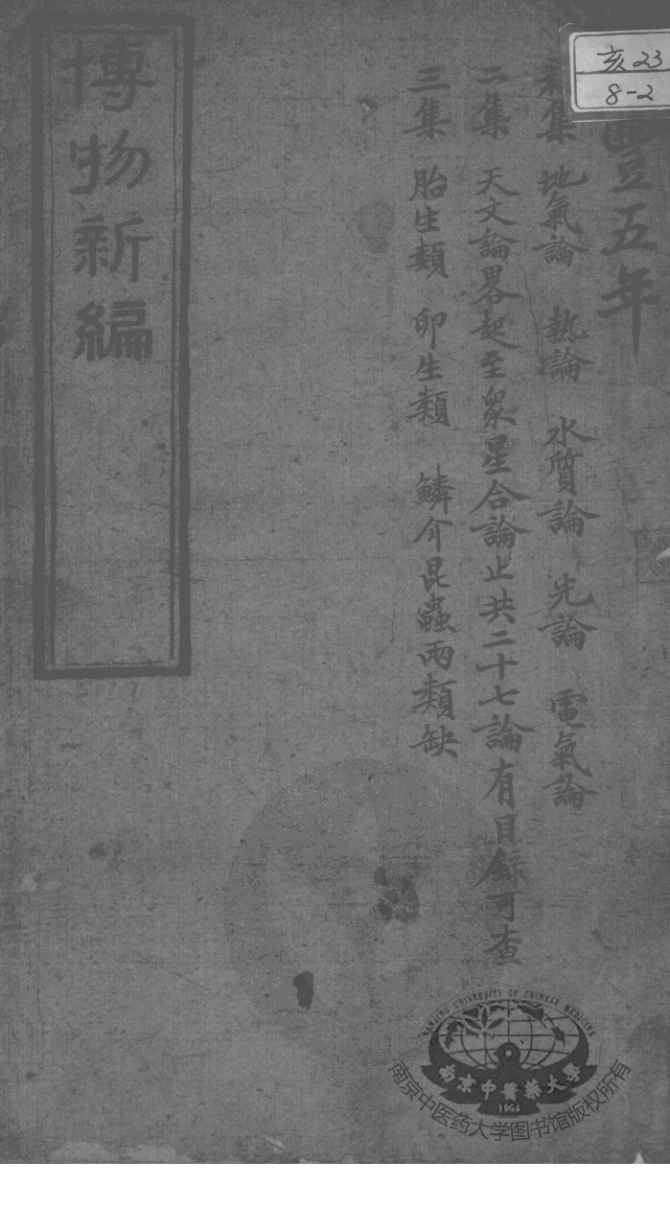 亥23
8-2
豐五年
集 地氣論 熱論 水質論 光論 電氣論
二集 天文論畧起至衆星合論止共二十七論有目錄可查
三集 胎生類 卵生類 鱗介昆蟲兩類缺
博物新編
NANJING UNIVERSITY OF CHINESE MEDICINE
南京中醫藥大學
1954
南京中医药大学图书馆版权所有